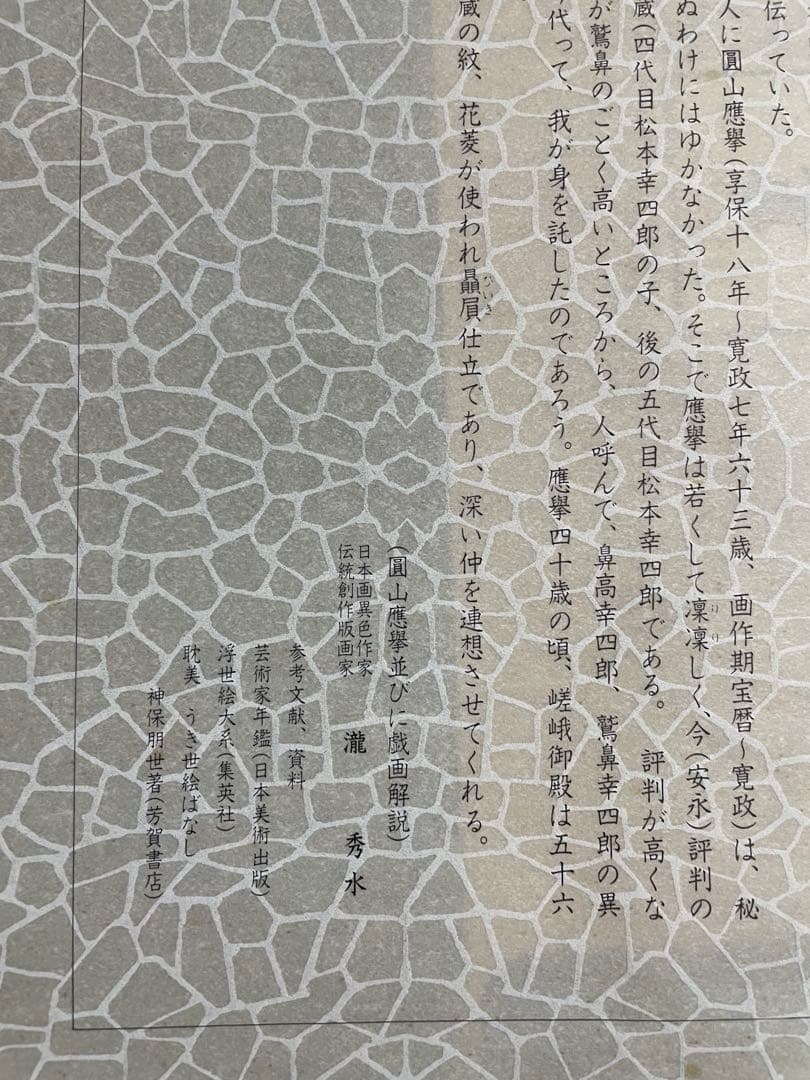 伝っていた。
人に圓山應擧(享保十八年〜寛政七年六十三歳、画作期宝暦〜寛政)は、秘
ぬわけにはゆかなかった。そこで應擧は若くして凜凜しく、今(安永)評判の
りり
蔵(四代目松本幸四郎の子、後の五代目松本幸四郎である。 評判が高くな
が鷲鼻のごとく高いところから、人呼んで、鼻高幸四郎、鷲鼻幸四郎の異
代って、我が身を託したのであろう。應擧四十歳の頃、嵯峨御殿は五十六
蔵の紋、花菱が使われ贔屓仕立であり、深い仲を連想させてくれる。
ひいき
(圓山應擧並びに戯画解説)
日本画異色作家
伝統創作版画家
瀧 秀水
参考文献、資料
芸術家年鑑(日本美術出版)
浮世絵大系(集英社)
耽美 うき世絵ばなし
神保朋世著(芳賀書店)